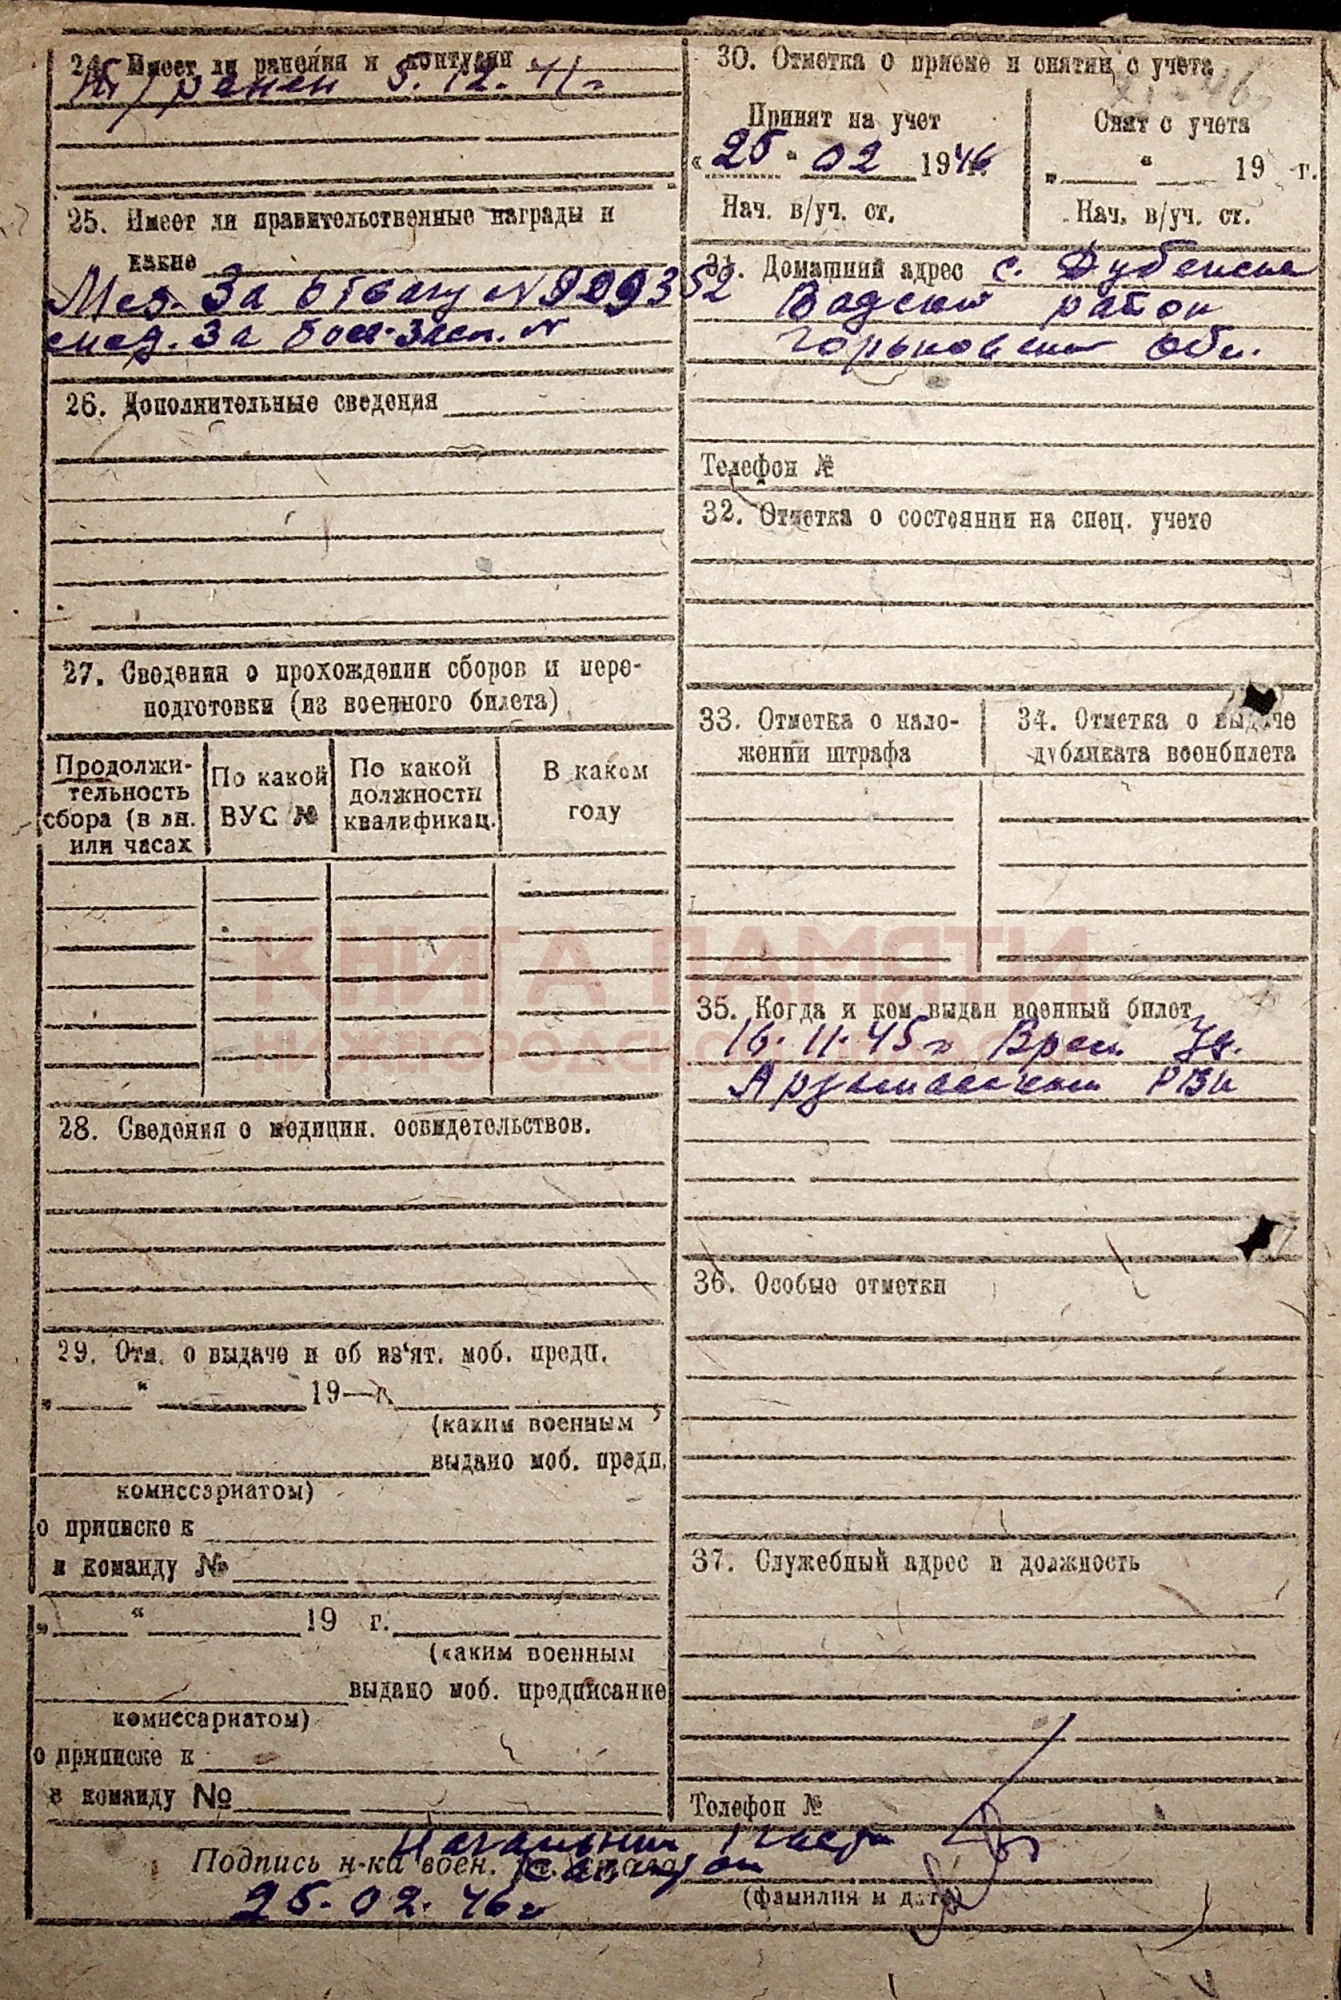 24. Имеет ли ранения и контузии
ранен 5.12.41 г
25. Имеет ли правительственные награды и
какие
Мед. За отвагу N
мед. За боев. засл. N
26. Дополнительные сведения
27. Сведения о прохождении сборов и пере-
подготовки (из военного билета)
Продолжи-
тельность
сбора (в дн.
или часах
По какой
ВУС №
По какой
должности
квалификац.
В каком
году
28. Сведения о медицин. освидетельствов.
29. Отм. о выдаче и об из'ят. моб. предп.
„ “ 19 г.
(каким военным
выдано моб. предп.
комиссариатом)
о приписке к
в команду №
„ “ 19 г.
(каким военным
выдано моб. предписание
комиссариатом)
о приписке к
в команду №
30. Отметка о приеме и снятии с учета
Принят на учет
« 25 “ 02 1946 г.
Нач. в/уч. ст.
Снят с учета
„ “ 19 г.
Нач. в/уч. ст.
31. Домашний адрес с.
Вадский район
Горьковской обл.
Телефон №
32. Отметка о состоянии на спец. учете
33. Отметка о нало-
жении штрафа
34. Отметка о выдаче
дубликата военбилета
35. Когда и кем выдан военный билет
16.11.45 г
Арзамасским РВК
36. Особые отметки
37. Служебный адрес и должность
Телефон №
Начальник
Подпись н-ка воен. уч. стола
(фамилия и дата)
25.02.46 г
КНИГА ПАМЯТИ
НИЖЕГОРОДСКОЙ ОБЛАСТИ